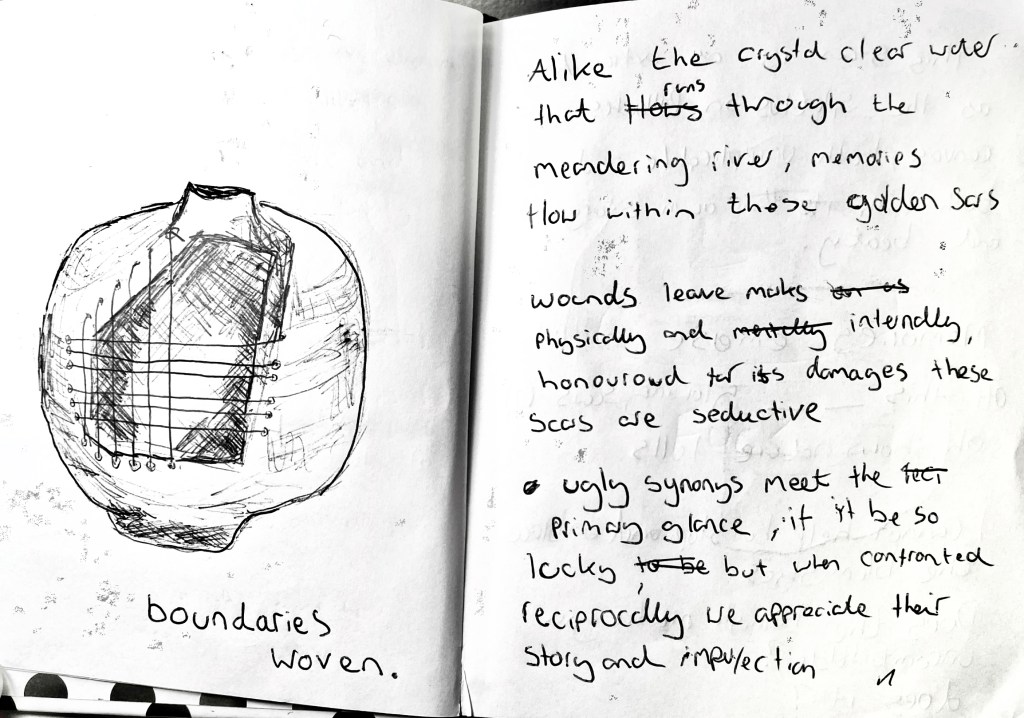 boundaries
woven.
Alike the crystal clear water
that flows runs through the
meandering river, memories
flow within those golden scars
wounds leave marks
physically and mentally internally,
honoured for its damages these
scars are seductive
ugly synonys meet the feet
primary glance, if it be so
lucky to be but when confronted
reciprocally we appreciate their
story and imperfection